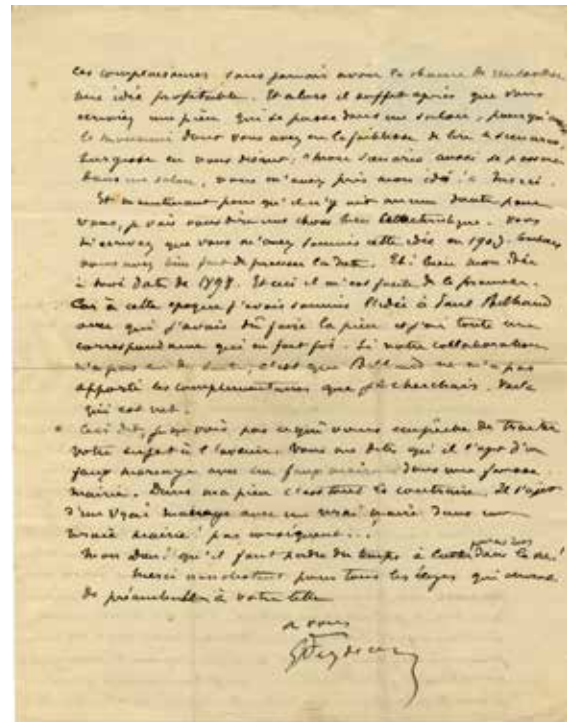 ces complaisances sans jamais avoir la chance de rencontrer
une idée profitable. Et alors il suffit après que vous
écriviez une pièce qui se passe dans un salon, pour qu'un
le monsieur dont vous avez eu la faiblesse de lire le scenario,
surgisse en vous disant : "mon scenario aussi se passait
dans un salon, vous m'avez pris mon idée ! merci.
Et maintenant pour qu'il n'y ait aucun doute pour
vous, je vais vous dire une chose bien catastrophique. Vous
m'écrivez que vous m'avez soumis cette idée en 1903.
vous avez bien fait de préciser la date. Eh ! bien mon idée
à moi date de 1898. Et ceci il m'est facile de le prouver.
Car à cette époque j'avais soumis l'idée à Paul Bilhaud
avec qui j'avais dû faire la pièce et j'ai toute une
correspondance qui en fait foi. Si notre collaboration
n'a pas eu de suite, c'est que Bilhaud ne m'a pas
apporté les complémentaires que je cherchais. Voilà
qui est net.
Ceci dit, je ne vois pas ce qui vous empêche de traiter
votre sujet à l'avenir. Vous me dites qu'il s'agit d'un
faux mariage avec un faux maire dans une fausse
mairie. Dans ma pièce c'est tout le contraire. Il s'agit
d'un vrai mariage avec un vrai maire dans une
vraie mairie ! par conséquent...
Mon Dieu ! qu'il faut perdre du temps à dans la vie !
Merci nonobstant pour tous les éloges qui servent
de préambule à votre lettre
à vous
G Feydeau